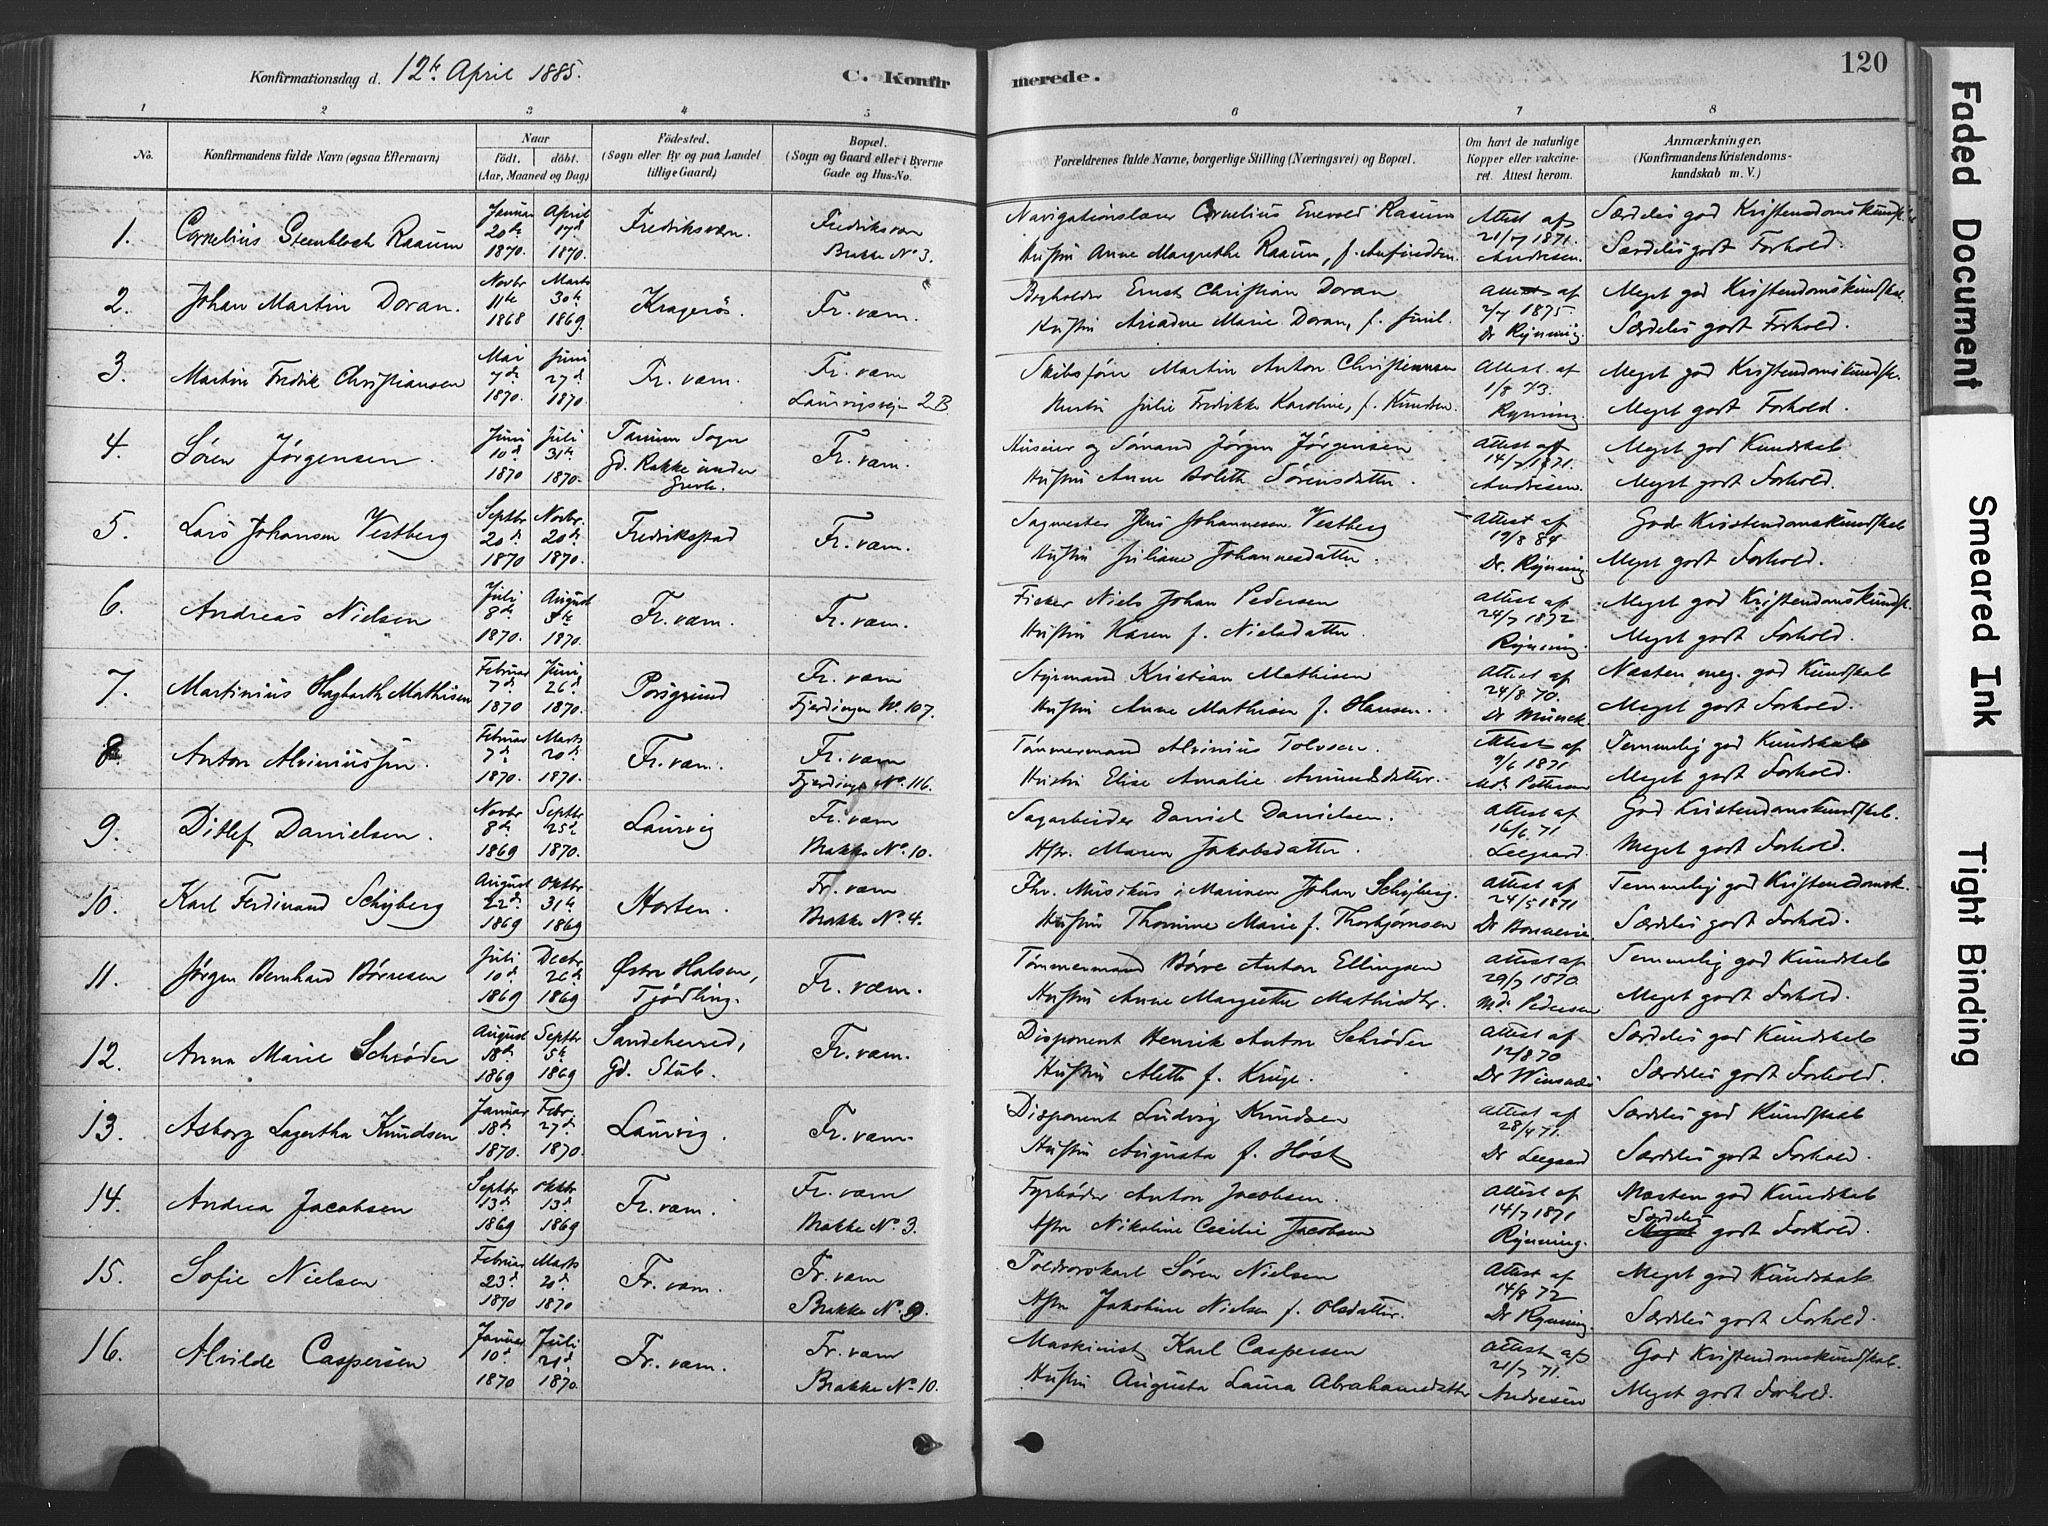 Konfirmationsdag d. 12te April 1885.
C. Konfirmerede.
120
1 2 3 4 5 6 7 8
No.
Konfirmandens fulde Navn (ogsaa Efternavn)
Naar
födt. döbt.
(Aar, Maaned og Dag)
Födested.
(Sogn eller By og paa Landet
tillige Gaard)
Bopæl.
(Sogn og Gaard eller i Byerne
Gade og Hus-No.
Forældrenes fulde Navne, borgerlige Stilling (Næringsvei) og Bopæl.
Om havt de naturlige
Kopper eller vakcine-
ret. Attest herom.
Anmærkninger.
(Konfirmandens Kristendoms-
kundskab m. V.)
1. Cornelius Steenbloch Raaum
Januar 20de 1870. April 17d 1870.
Fredriksværn.
Fredriksværn
Brakke No 3.
Navigationslærer Cornelius Enevold Raaum
Hustru Anne Margrethe Raaum, f. Anfindsen.
Attest af
21/7 1871.
Andresen.
Særdeles god Kristendomskundsk.
Særdeles godt Forhold.
2. Johan Martin Doran.
Novbr 11te 1868 Marts 30te 1869.
Kragerös.
Fr. værn.
Bogholder Ernst Christian Doran
Hustru Ariadne Marie Doran, f.
Attest af
2/7 1875.
Dr Rynning.
Meget god Kristendomskundskab.
Særdeles godt Forhold.
3. Martin Fredrik Christiansen
Mai 7de 1870. Juni 27d 1870.
Fr. værn.
Fr. værn
Laurvigsveje 2 B.
Skibsfører Martin Anton Christiansen
Hustru Julie Fredrikke Karoline, f. Knudsen.
Attest af
1/8 73.
Rynning.
Meget god Kristendomskundsk.
Meget godt Forhold.
4. Sören Jørgensen.
Juni 10d 1870 Juli 31te 1870.
Tanum Sogn
Gd. Rakke under
Fr. værn.
Huseier og Sömand Jørgen Jørgensen
Hustru Anne Bolette Sörensdatter
Attest af
14/7 1871.
Andresen.
Meget god Kundskab
Meget godt Forhold.
5. Lars Johansen Vestberg
Septbr 20d 1870 Novbr. 20de 1870.
Fredrikstad
Fr. værn.
Sagmester Jens Johannesen Vestberg
Hustru Juliane Johannesdatter.
Attest af
19/8 84
Dr. Rynning
Gode Kristendomskundskab
Meget godt Forhold.
6. Andreas Nielsen
Juli 8de 1870. August 1870.
Fr. værn.
Fr. værn.
Fisker Niels Johan Pedersen
Hustru Karen f. Nielsdatter.
Attest af
24/7 1872
Rynning.
Meget god Kristendomskundsk.
Meget godt Forhold.
7. Martinius Hagbarth Mathisen
Februar 7de 1870 Juni 26d 1870.
Porsgrund
Fr. værn
Fjerdingen No. 107.
Styrmand Kristian Mathisen
Hustru Anne Mathisen f. Hansen.
Attest af
24/8 70.
Dr Munck.
Næsten meg. god Kundskab
Meget godt Forhold.
8. Anton Alviniussen.
Februar 7de 1870. Marts 20d 1870.
Fr. værn.
Fr. værn
Fjerdingen No. 116.
Tømmermand Alvinius Tolvsen.
Hustru Elise Amalie Amundsdatter.
Attest af
9/6 1871
Md. Pettersen
Temmelig god Kundskab
Meget godt Forhold.
9. Ditlef Danielsen.
Novbr 8de 1869 Septbr 25d 1870.
Laurvig
Fr. værn
Brakke No. 10.
Sagarbeider Daniel Danielsen.
Hstr. Maren Jakobsdatter.
Attest af
16/6. 71
Leegaard.
God Kristendomskundskab.
Meget godt Forhold.
10. Karl Ferdinand Schyberg
August 22d. 1869 Oktbr 31te 1869
Horten.
Fr. værn.
Brakke No. 4.
Fhv. Musikus i Marinen Johan Schyberg.
Hustru Thomine Marie f. Thorbjørnsen
Attest af
24/5 1871
Temmelig god Kristendomsk.
Særdeles godt Forhold.
11. Jørgen Bernhard Børresen
Juli 10d 1869 Decbr. 26d 1869
Østre Halsen,
Tjödling.
Fr. værn.
Tømmermand Børre Anton Ellingsen
Hustru Anne Margrethe Mathisdtr.
Attest af
29/7 1870.
Md. Pedersen
Temmelig god Kundskab
Meget godt Forhold.
12. Anna Marie Schrøder
August 18de 1869 Septbr 5te 1869
Sandeherred,
Gd. Stub.
Fr. værn.
Disponent Henrik Anton Schrøder
Hustru Alette f. Kruge.
Attest af
12/8 70
Dr Winsnæs
Særdeles god Kundskab
Særdeles godt Forhold.
13. Asborg Lagertha Knudsen
Januar 18de 1870. Febr. 27d. 1870.
Laurvig.
Fr. værn.
Disponent Ludvig Knudsen
Hustru Augusta f. Høst
Attest af
28/4 71.
Dr Leegaard
Særdeles god Kundskab
Særdeles godt Forhold.
14. Andrea Jacobsen
Septbr 13d 1869 Oktbr 13d 1869
Fr. værn.
Fr. værn
Brakke No. 3.
Fyrbøder Anton Jacobsen.
Hstr Nikoline Cecilie Jacobsen
Attest af
14/7 1871
Rynning.
Næsten god Kundskab
Særdeles
Meget godt Forhold.
15. Sofie Nielsen
Februar 23d 1870 Marts 20d 1870
Fr. værn.
Fr. værn
Brakke No. 9.
Toldrorskarl Søren Nielsen
Hstr Jakobine Nielsen f. Olsdatter.
Attest af
14/8 72
Dr Rynning
Meget god Kundskab
Særdeles godt Forhold.
16. Alvilde Caspersen
Januar 10d. 1870 Juli 21d. 1870.
Fr. værn.
Fr. værn
Brakke No. 10.
Maskinist Karl Caspersen
Hustru Augusta Laura Abrahamsdatter
Attest af
21/7 71.
Andresen
God Kristendomskundskab.
Meget godt Forhold.
Faded Document
Smeared Ink
Tight Binding